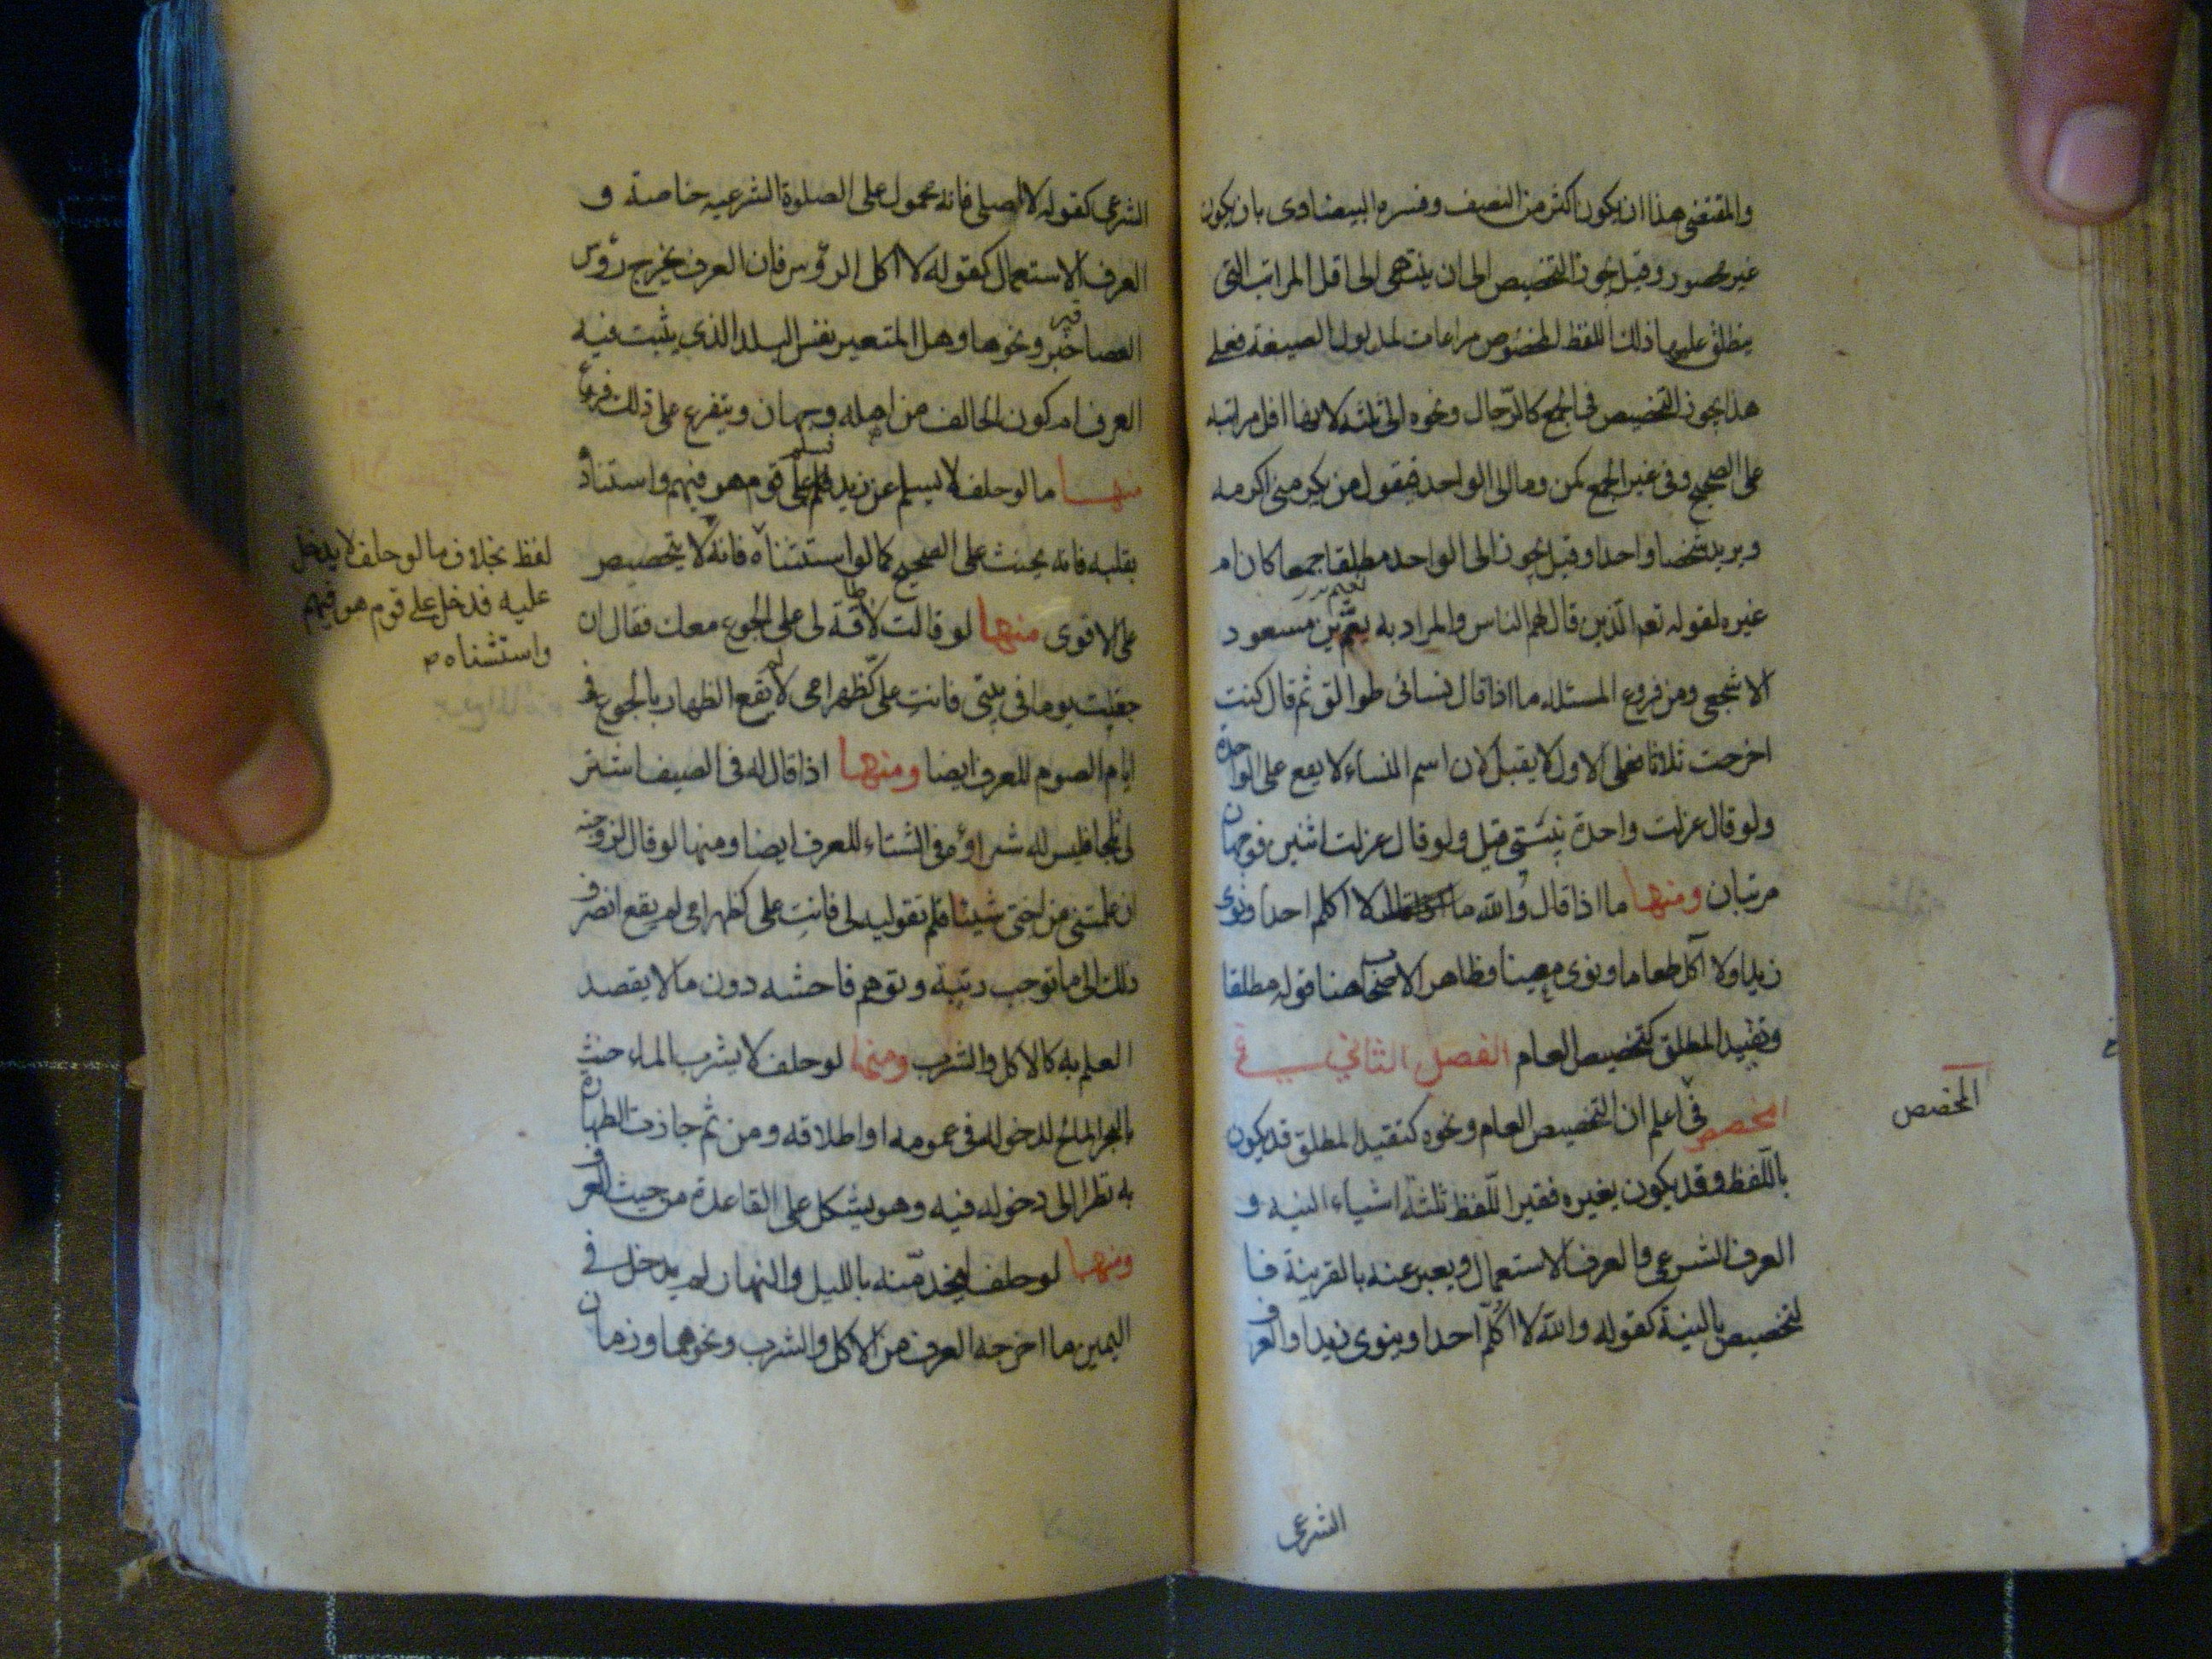 والمقتضى هذا ان يكون اكثر من النصف وفسره البيضاوى بان يكون
غير محصور وقيل يجوز التخصيص الى ان ينتهى الى اقل المراتب التى
ينطلق عليها ذلك اللفظ المخصوص مراعات لمدلول الصيغة فعلى
هذا يجوز التخصيص فى الجمع كالرّجال ونحوه الى ثلثة لانها اقل مراتبه
على الصحيح وفى غير الجمع كمن وما الى الواحد فيقول من يكرمنى اكرمه
ويريد شخصا واحدا وقيل يجوز الى الواحد مطلقا جمعا كان ام
غيره لقوله تعم الّذين قال لهم الناس والمراد به نعيم بن مسعود
الاشجعى ومن فروع المسئلة ما اذا قال نسائى طوالق ثم قال كنت
اخرجت ثلاثا فعلى الاول لا يقبل لان اسم النساء لا يقع على الواحدة
ولو قال عزلت واحدة قبل ولو قال عزلت اثنين فوجهان
مرتبان ومنها ما اذا قال والله لا اكلم احدا ونوى
زيدا ولا آكل طعاما ونوى معينا وظاهر الاصحاب هنا قوله مطلقا
وتقييد المطلق كتخصيص العام الفصل الثانى فى
المخصص فى اعلم ان التخصيص العام ونحوه كتقييد المطلق قد يكون
باللّفظ وقد يكون بغيره فغير اللّفظ ثلثة اشياء النيه و
العرف الشرعى والعرف الاستعمال ويعبر عنه بالقرينة فا
لتخصيص بالنية كقوله والله لا اكلّم احدا وينوى زيدا والعرف
الشرعى
المخصص
الشرعى كقوله لا اصلى فانه محمول على الصلوة الشرعيه خاصة و
العرف الاستعمال كقوله لا اكل الرؤس فان العرف يخرج رؤس
العصافير ونحوها وهل المتعبر نفس البلد الذى يثبت فيه
العرف ام كون الحالف من اهله وجهان ويتفرع على ذلك فروع
منها ما لو حلف لا يسلم على زيد فسلم على قوم هو فيهم واستثناه
بقلبه فانه يحنث على الصحيح كما لو استثناه فانه لا يتخصيص
على الاقوى منها لو قالت لا طاقة لى على الجوع معك فقال ان
جعلت يوما فى بيتى فانت علىّ كظهر امى لم يقع الظهار بالجوع فى
ايام الصوم للعرف ايضا ومنها اذا قال له فى الصيف اشتر
لى ثلجا فليس له شراؤه فى الشتاء للعرف ايضا ومنها لو قال لزوجته
ان علمتنى من اختى شيئا فلم تقوليه لى فانت على كظهر امى لم يقع انصرف
ذلك الى ما توجب ريبة وتوهم فاحشه دون ما لا يقصد
العلم به كالاكل والشرب ومنها لو حلف لا يشرب الماء حنث
بالبحر المالح لدخوله فى عمومه او اطلاقه ومن ثم جازت الطهارة
به نظرا الى دخوله فيه وهو يشكل على القاعدة من حيث العرف
ومنها لو حلف ليخدمّنه بالليل والنهار لم يدخل فى
اليمين ما اخرجه العرف من الاكل والشرب ونحوهما وزمان
لفظ بخلاف ما لو حلف لا يدخل
عليه فدخل على قوم هو فيهم
واستثناه